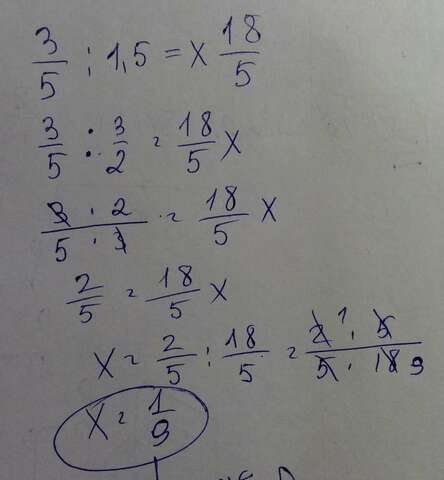 3/5 : 1,5 = x 18/5
3/5 : 3/2 = 18/5 x
3 · 2 / 5 · 3 = 18/5 x
2/5 = 18/5 x
x = 2/5 : 18/5 = 2 1 · 5 / 5 · 18 9
x = 1/9